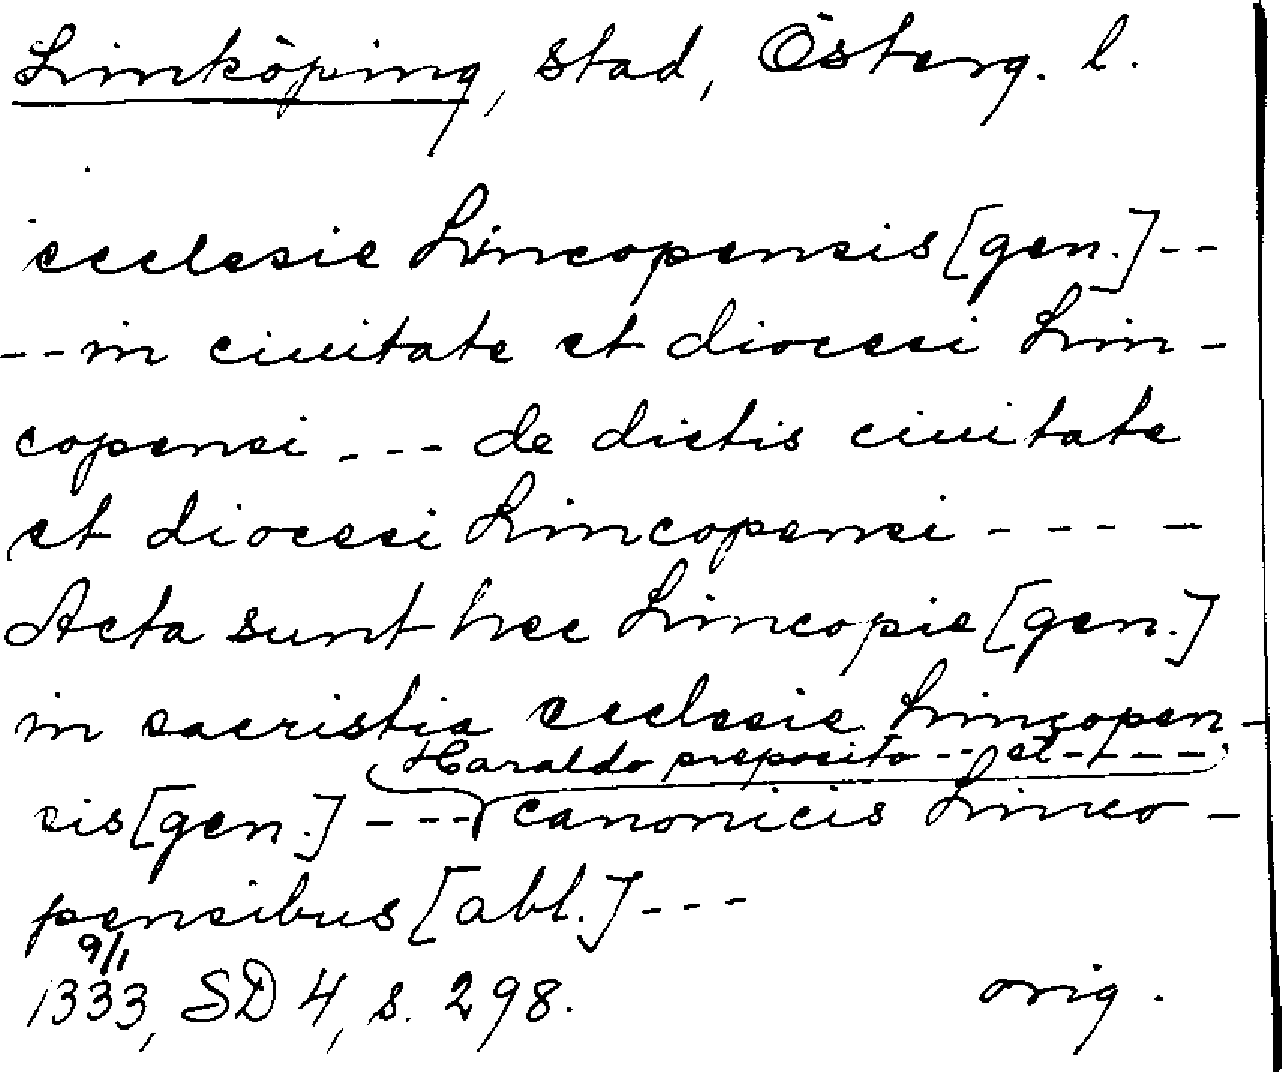 Linköping, stad, Österg. l.
ecclesie Lincopensis [gen.] --
-- in ciuitate et diocesi Lin-
copensi --- de dictis ciuitate
et diocesi Lincopensi ----
Acta sunt hec Lincopie [gen.]
in sacristia ecclesie Lincopen-
Haraldo preposito -- et ----
sis [gen.] --- canonicis Linco-
pensibus [abl.] ---
9/1
1333, SD 4, s. 298. orig.